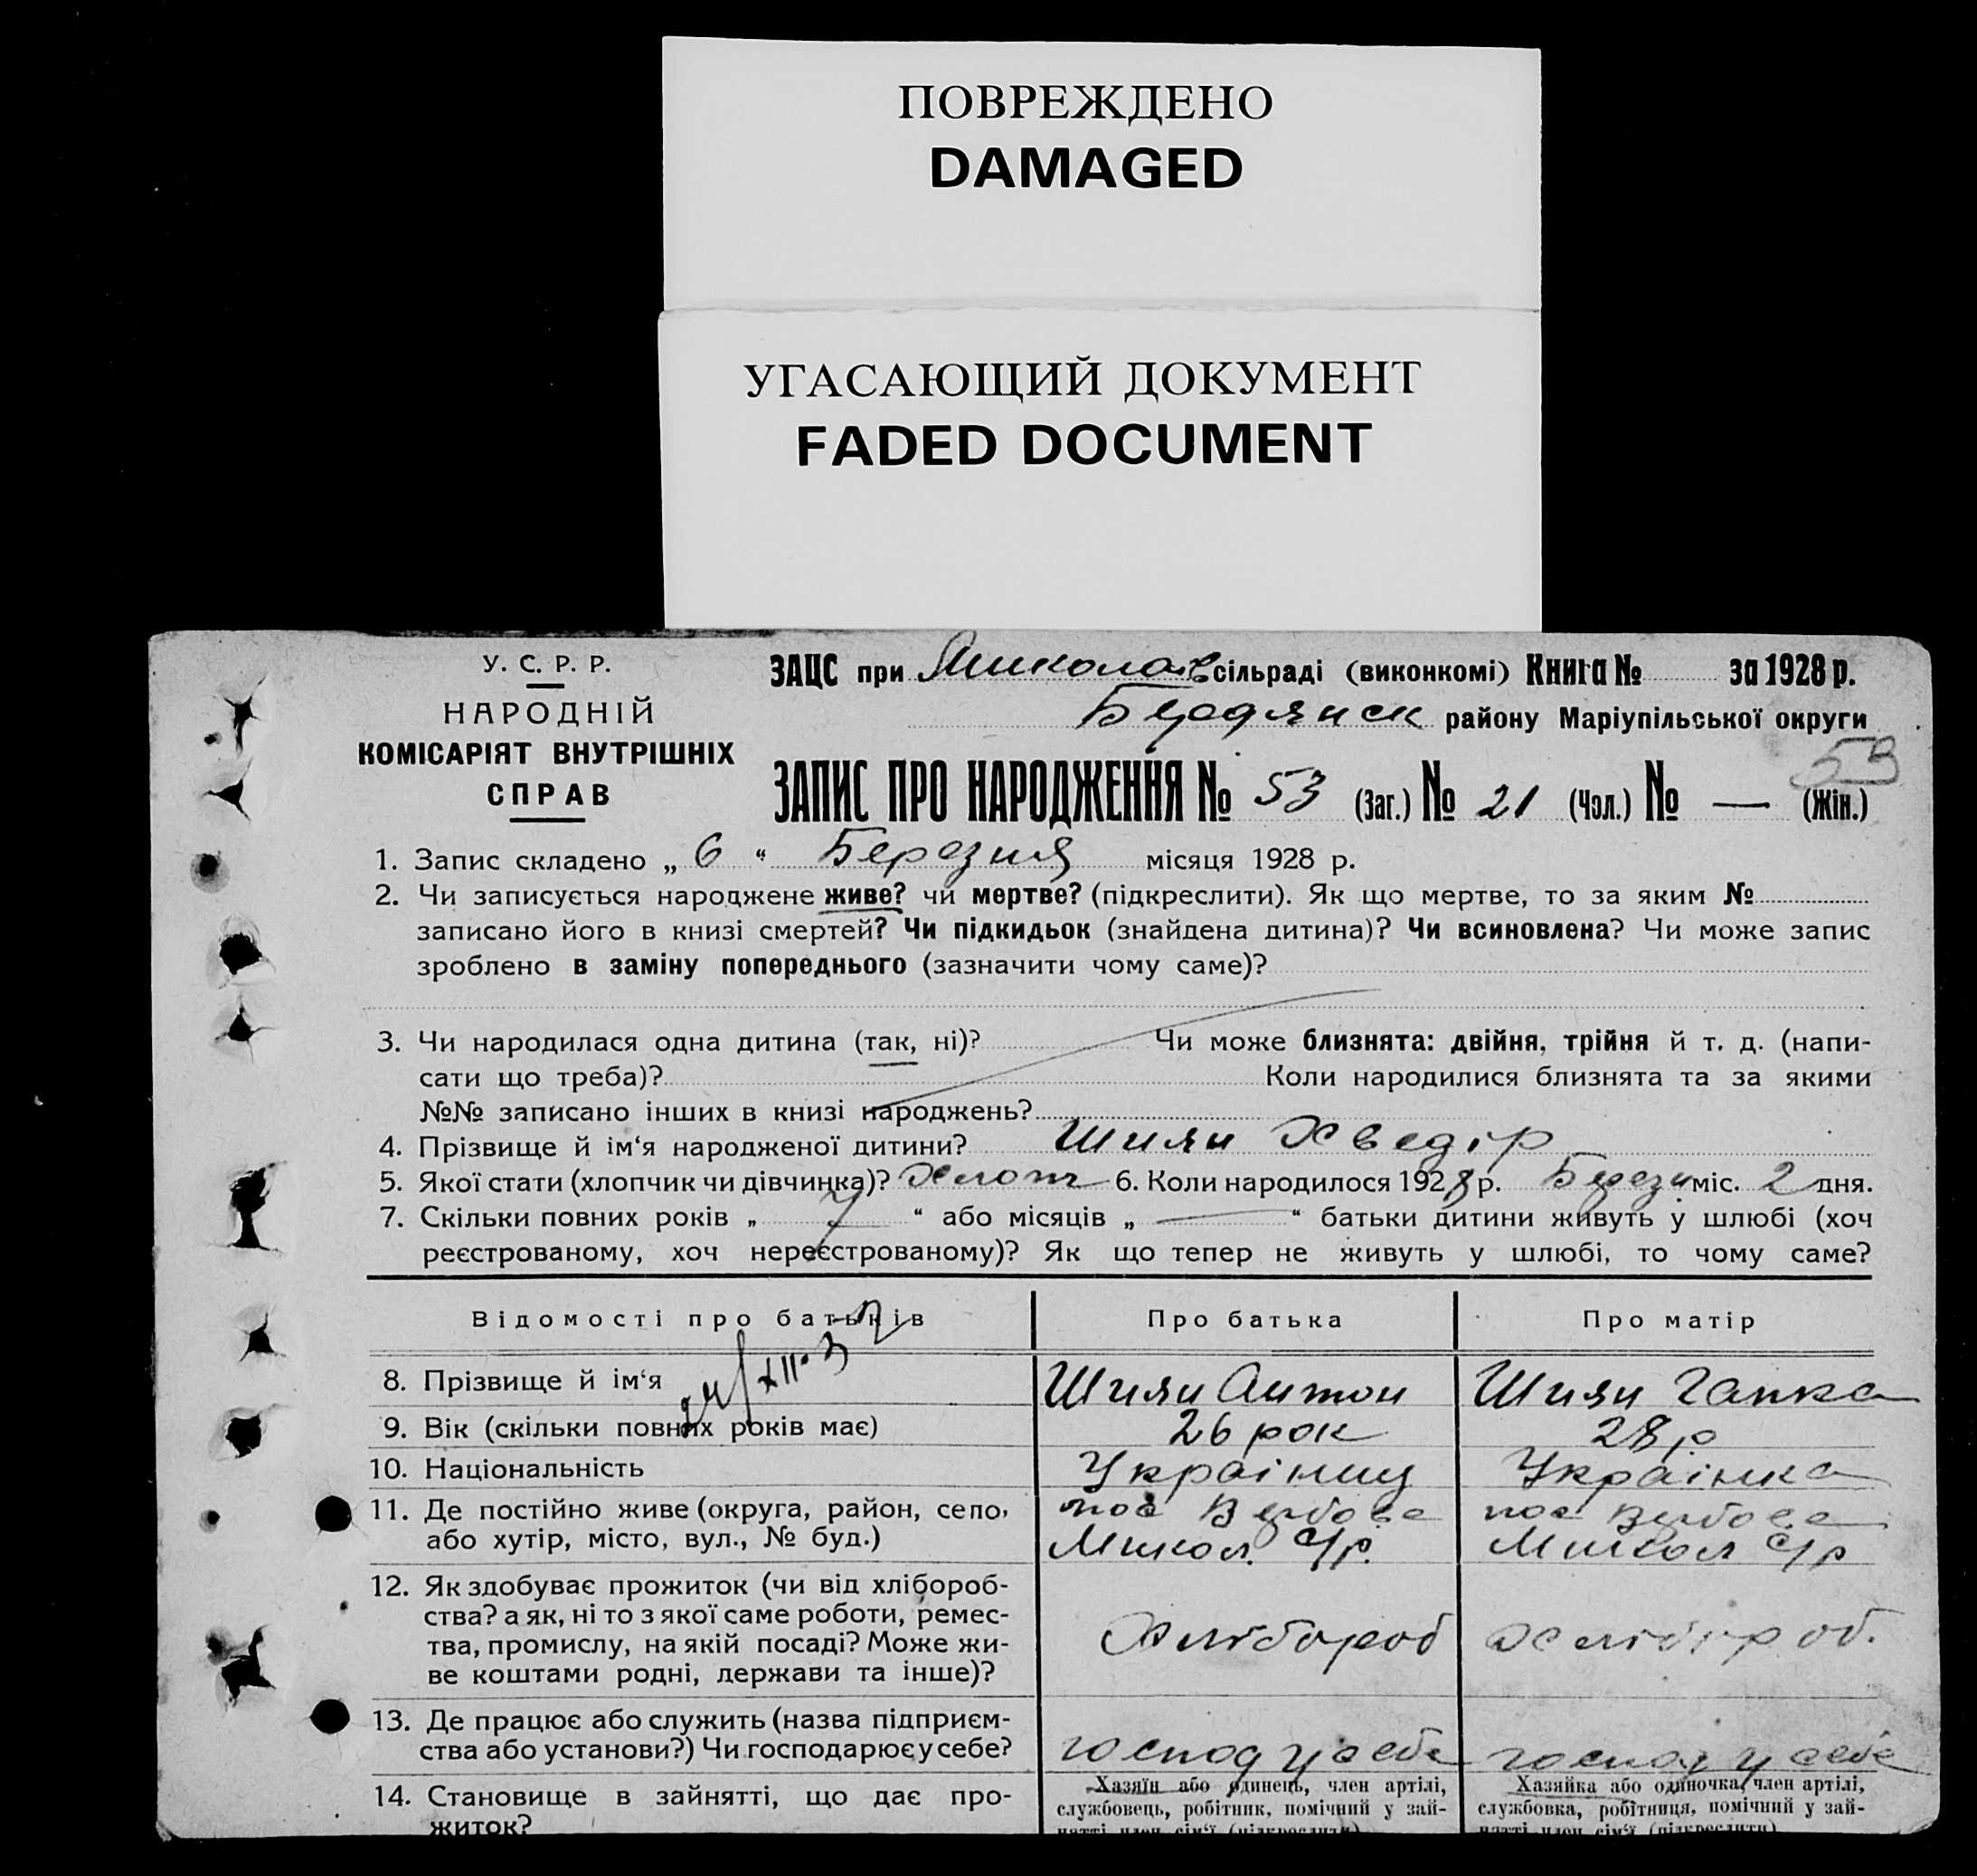 ПОВРЕЖДЕНО
DAMAGED
УГАСАЮЩИЙ ДОКУМЕНТ
FADED DOCUMENT
У. С. Р. Р.
НАРОДНІЙ
КОМІСАРІЯТ ВНУТРІШНІХ
СПРАВ
ЗАЦС при Миколаів сільраді (виконкомі) Книга № за 1928 р.
Бердянск району Маріупільської округи
53
ЗАПИС ПРО НАРОДЖЕННЯ № 53 (Заг.) № 21 (Чол.) № — (Жін.)
1. Запис складено „ 6 “ Березня місяця 1928 р.
2. Чи записується народжене живе? чи мертве? (підкреслити). Як що мертве, то за яким №
записано його в книзі смертей? Чи підкидьок (знайдена дитина)? Чи всиновлена? Чи може запис
зроблено в заміну попереднього (зазначити чому саме)?
3. Чи народилася одна дитина (так, ні)? Чи може близнята: двійня, трійня й т. д. (напи-
сати що треба)? Коли народилися близнята та за якими
№№ записано інших в книзі народжень?
4. Прізвище й ім‘я народженої дитини? Шиян Хведір
5. Якої стати (хлопчик чи дівчинка)? Хлопч 6. Коли народилося 1928 р. Березн міс. 2 дня.
7. Скільки повних років „ 7 “ або місяців „ — “ батьки дитини живуть у шлюбі (хоч
реєстрованому, хоч нереєстрованому)? Як що тепер не живуть у шлюбі, то чому саме?
Відомості про батьків Про батька Про матір
8. Прізвище й ім‘я Шиян Антон Шиян Гапка
9. Вік (скільки повних років має) 26 рок 28 р
10. Національність Украіниц Украінка
11. Де постійно живе (округа, район, село, пос Вербова пос Вербова
або хутір, місто, вул., № буд.) Микол. С/р. Микол С/р
12. Як здобуває прожиток (чи від хлібороб-
ства? а як, ні то з якої саме роботи, ремес-
тва, промислу, на якій посаді? Може жи- Хлібороб Хлібороб.
ве коштами родні, держави та інше)?
13. Де працює або служить (назва підприєм-
ства або установи?) Чи господарює у себе? господ у себе господ у себе
14. Становище в зайнятті, що дає про- Хазяїн або одинець, член артілі, Хазяйка або одиночка, член артілі,
службовець, робітник, помічний у зай- службовка, робітниця, помічний у зай-
житок? нятті член сім‘ї (підкреслити) нятті член сім‘ї (підкреслити)